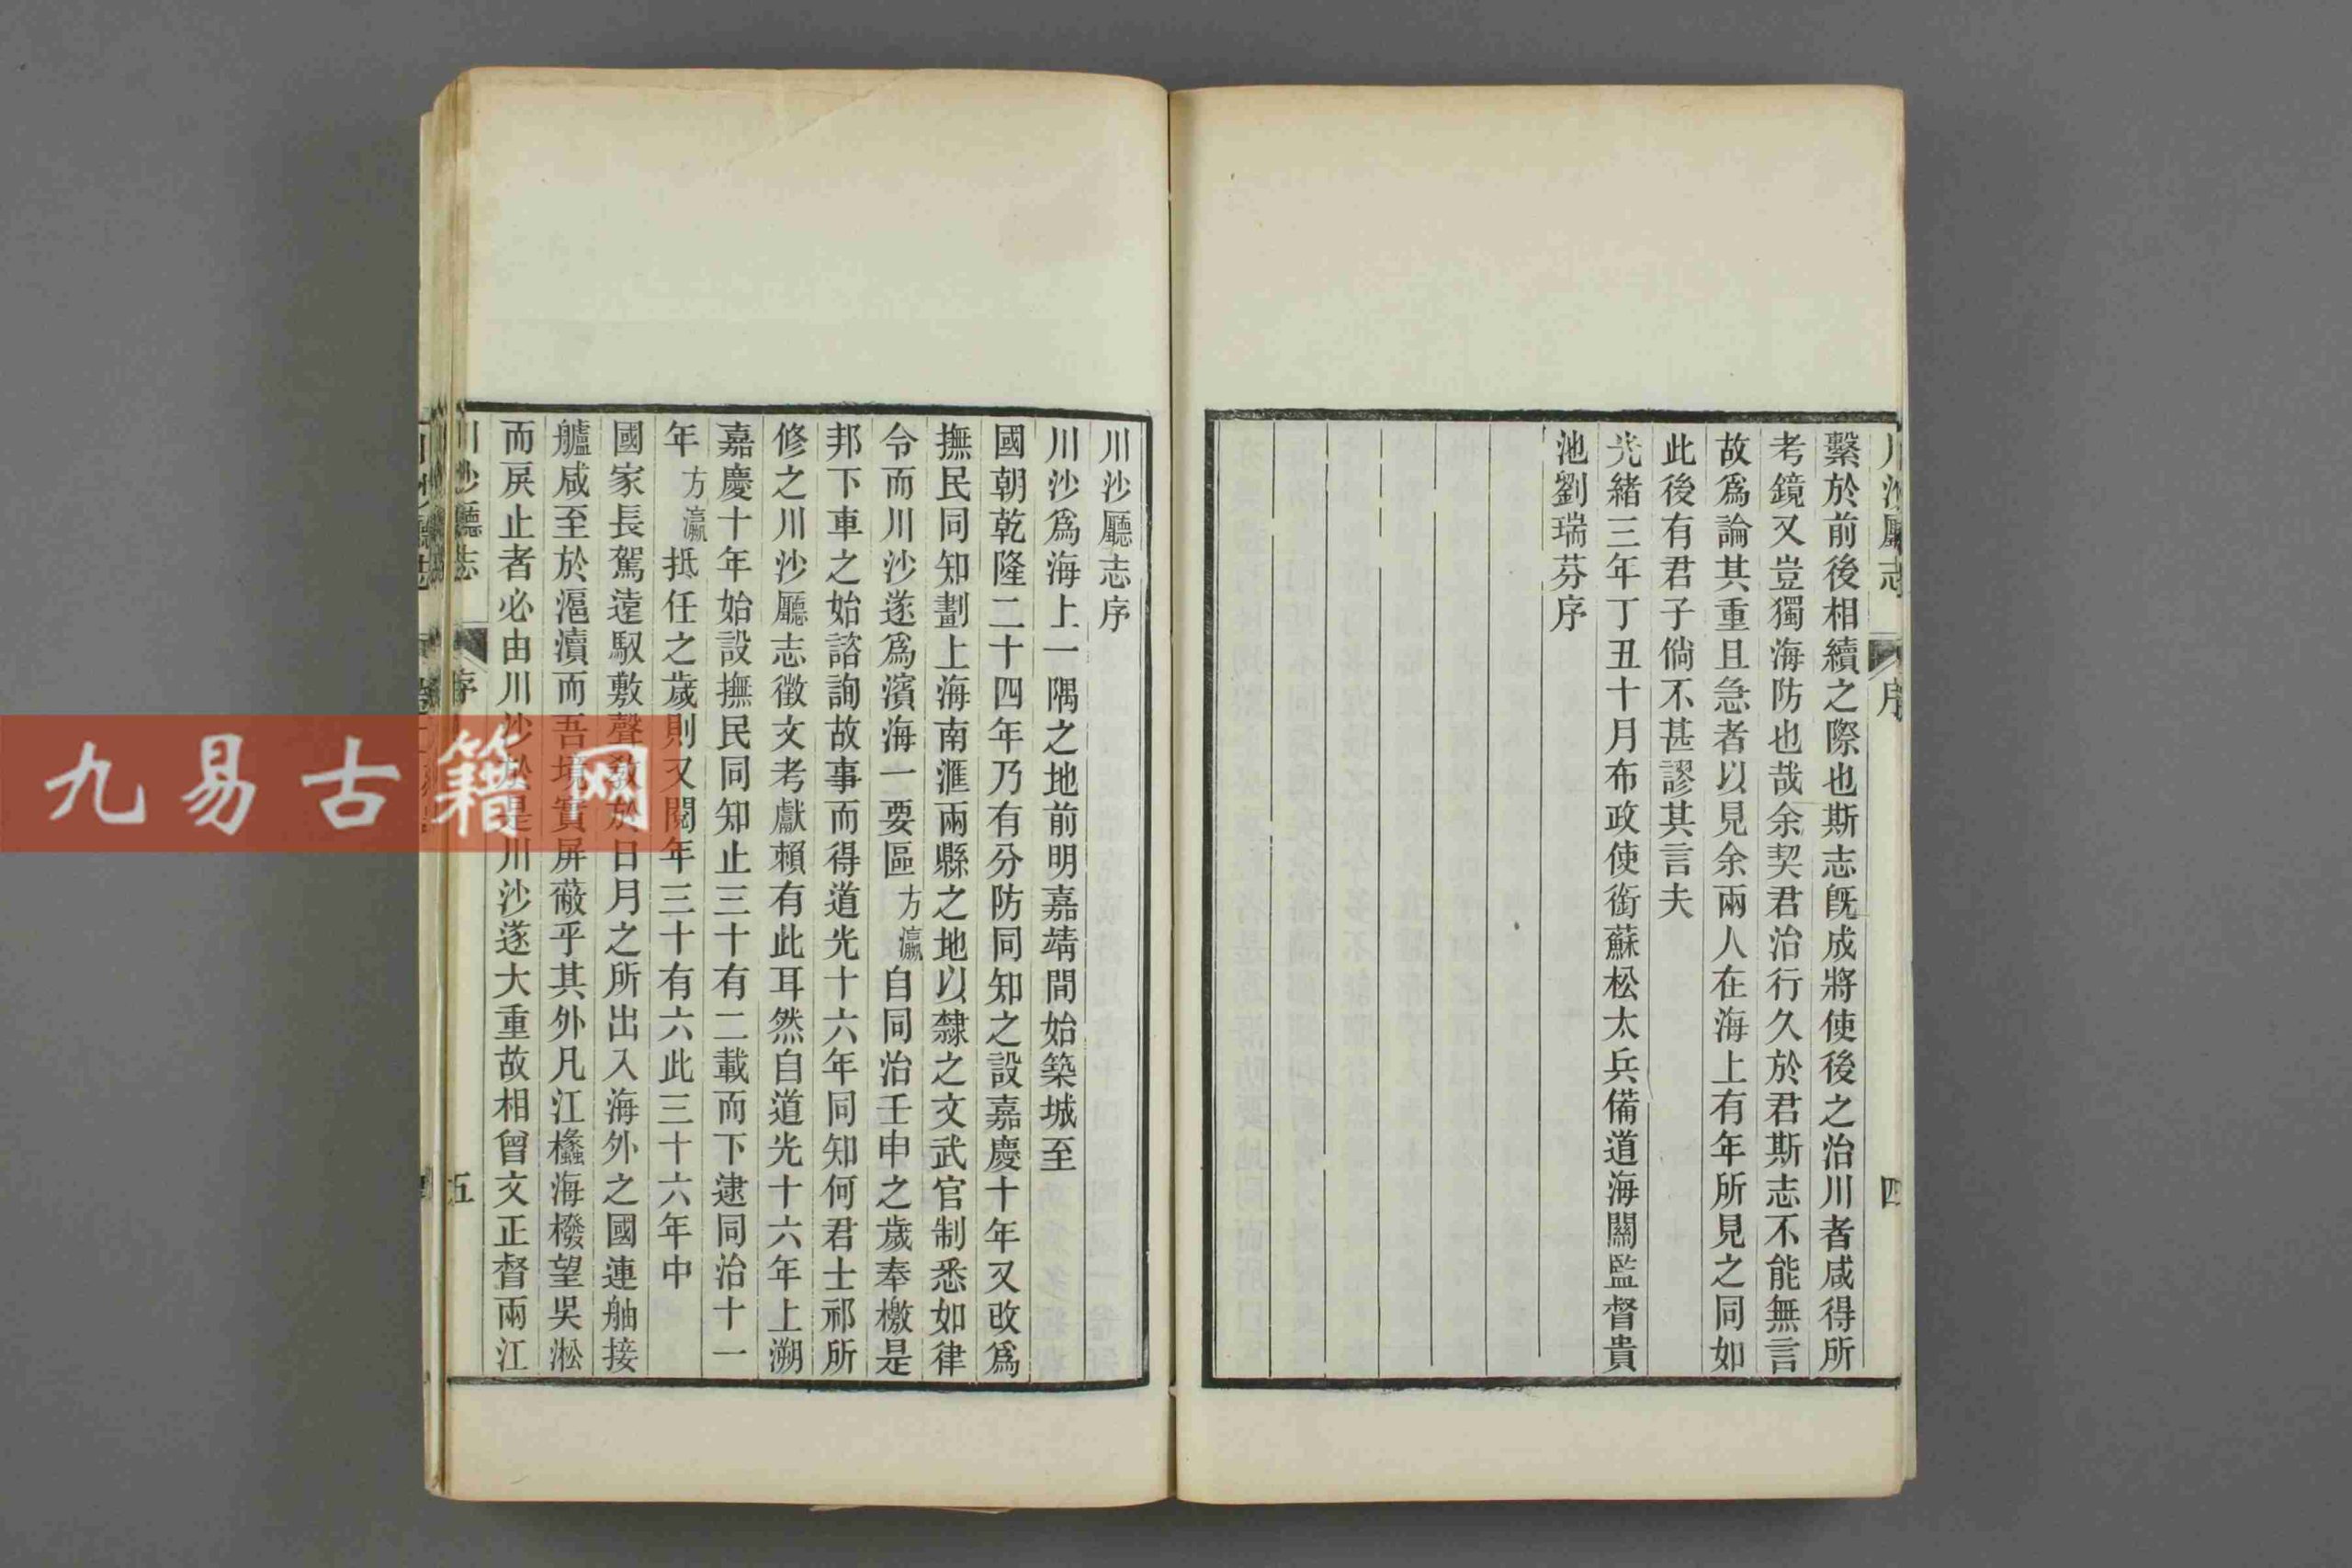 川沙廳志
序
四
繫於前後相續之際也斯志旣成將使後之治川者咸得所
考鏡又豈獨海防也哉余契君治行久於君斯志不能無言
故爲論其重且急者以見余兩人在海上有年所見之同如
此後有君子倘不甚謬其言夫
光緒三年丁丑十月布政使銜蘇松太兵備道海關監督貴
池劉瑞芬序
川沙廳志序
川沙爲海上一隅之地前明嘉靖間始築城至
國朝乾隆二十四年乃有分防同知之設嘉慶十年又改爲
撫民同知劃上海南滙兩縣之地以隸之文武官制悉如律
令而川沙遂爲濱海一要區方瀛自同治壬申之歲奉檄是
邦下車之始諮詢故事而得道光十六年同知何君士祁所
修之川沙廳志徵文考獻賴有此耳然自道光十六年上溯
嘉慶十年始設撫民同知止三十有二載而下逮同治十一
年方瀛抵任之歲則又閱年三十有六此三十六年中
國家長駕遠馭敷聲敎於日月之所出入海外之國連舳接
艫咸至於滬瀆而吾境實屏蔽乎其外凡江檥海橃望吳淞
而戾止者必由川沙於是川沙遂大重故相曾文正督兩江
川沙廳志
序
五
九易古籍网